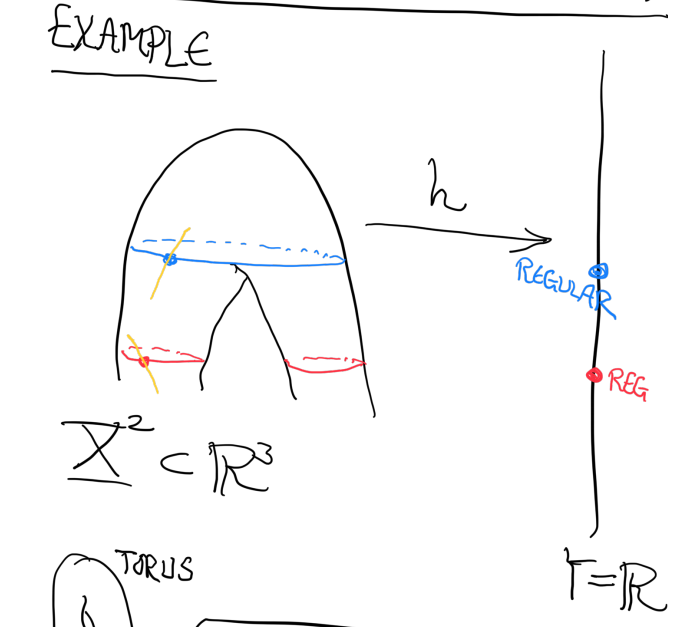 EXAMPLE
h
REGULAR
REG
X² ⊂ ℝ³
Y = ℝ
TORUS